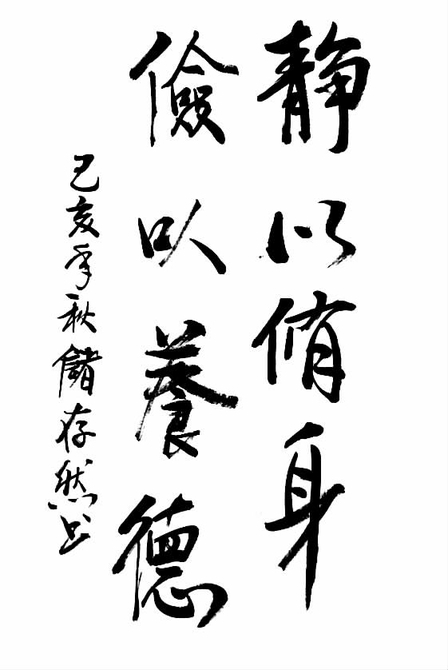 静以脩身
儉以養德
己亥年秋儲存然书